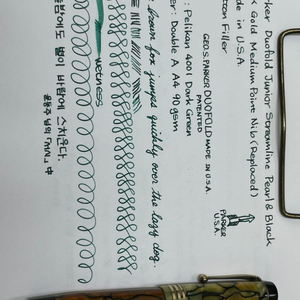 rker Duofold Junior Streamline Pearl & Black
K Gold Medium Point Nib (Replaced)
de in U.S.A.
tton Filler
GEO. S. PARKER DUOFOLD MADE IN U.S.A.
PATENTED
PARKER
U.S.A.
: Pelikan 4001 Dark Green
er : Double A A4 90gsm
brown fox jumps quickly over the lazy dog.
wetness
밤에도 별이 바람에 스치운다.
윤동주 님의 「서시」 中